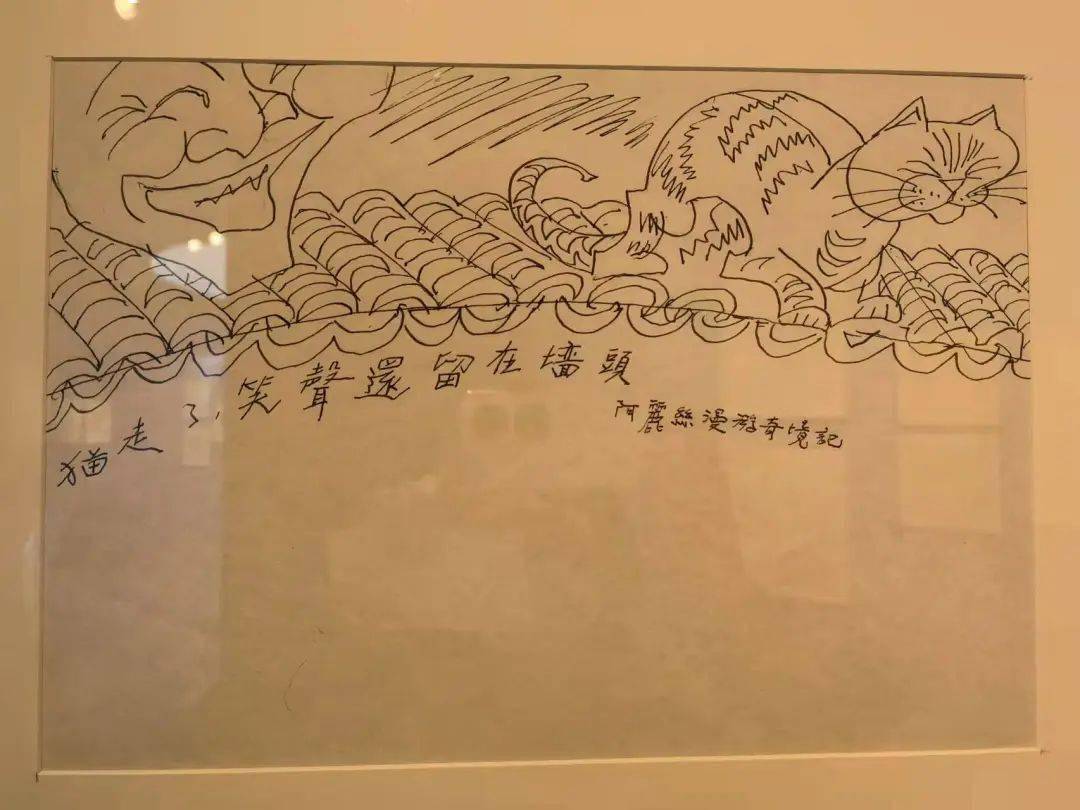 猫走了,笑聲還留在墻頭
阿麗絲漫游奇境記